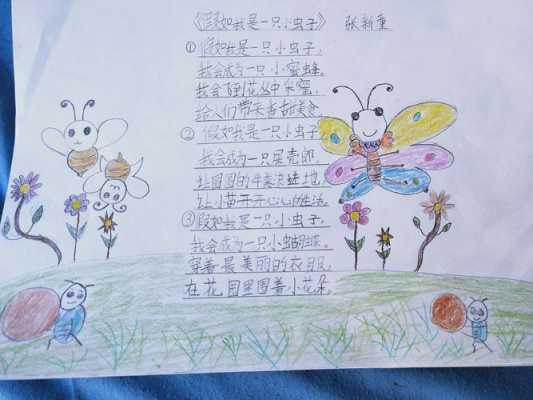 《假如我是一只小虫子》 张新童
①假如我是一只小虫子,
我会成为一只小蜜蜂。
我会飞到花丛中采蜜,
给人们带来香甜美食。
②假如我是一只小虫子
我会成为一只屎壳郎
让圆圆的牛粪滚进地,
让小苗开开心心的生活。
③假如我是一只小虫子,
我会成为一只小蝴蝶。
穿着最美丽的衣服,
在花园里围着小花朵